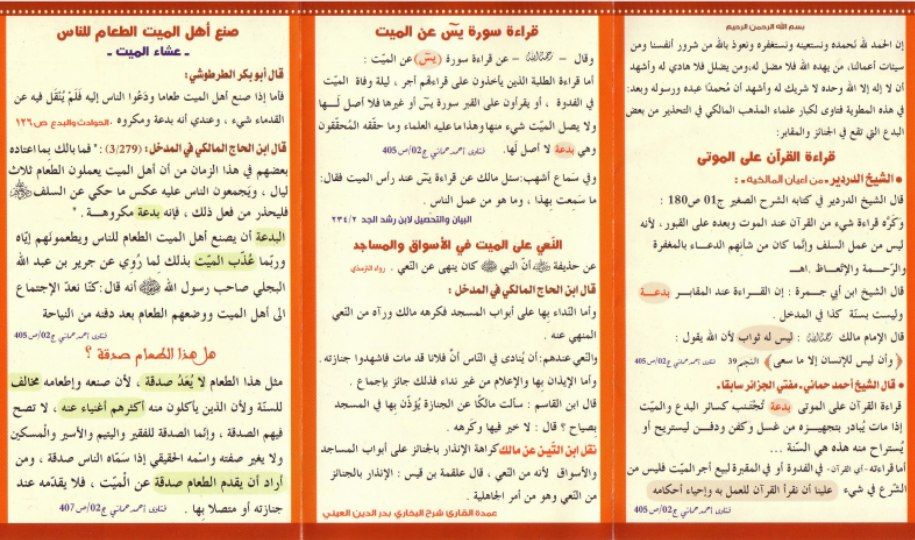 بسم الله الرحمن الرحيم
إن الحمد لله نحمده ونستعينه ونستغفره ونعوذ بالله من شرور أنفسنا ومن
سيئات أعمالنا، من يهده الله فلا مضل له،ومن يضلل فلا هادي له وأشهد
أن لا إله إلا الله وحده لا شريك له وأشهد أن مُحمدًا عبده ورسوله وبعد:
في هذه المطوية فتاوى لكبار علماء المذهب المالكي في التحذير من بعض
البدع التي تقع في الجنائز والمقابر:
قراءة القرآن على الموتى
● الشيخ الدردير «من أعيان المالكية» :
قال الشيخ الدردير في كتابه الشرح الصغير ج01 ص180 :
وكَرُه قراءة شيء من القرآن عند الموت وبعده على القبور ، لأنه
ليس من عمل السلف وإنَّما كان من شأنِهم الدعــاء بالمغفرة
والرّحـمة والإتّعـاظ .اهــ
قال الشيخ ابن أبي جـمرة : إن القــراءة عند المقابـر بدعــة
وليست بسنّة كذا في المدخل .
قال الإمام مالك : ليس له ثواب لأن الله يقول :
﴿ وأن ليس للإنسان إلا ما سعى ﴾ النجم39 فتاوى أحمد حماني ج02/ص405
● قال الشيخ أحمد حماني، مفتي الجزائر سابقا،
قراءة القرآن على الموتى بدعة تُجْتنب كسائر البدع والميّت
إذا مات يُبادر بتجهيـزه من غسل وكفن ودفـن ليستريح أو
يُستراح منه هذه هي السّنة ...
أما قراءته -أي القرآن- في الفدوة أو في المقبرة لبيع أجر الميّت فليس من
الشّرع في شيء علينا أن نقرأ القرآن للعمل به وإحياء أحكامه
فتاوى أحمد حماني ج02/ص405
قراءة سورة يسّ عن الميت
وقال – – عن قراءة سورة (يسّ) عن الميّت :
أما قراءة الطلبة الذين يأخذون على قراءتهم أجر ، ليلة وفاة الميّت
في الفدوة ، أو يقرأون على القبر سورة يسّ أو غيرها فلا أصل لَــها
ولا يصل الميّت شيء منها وهذا ما عليه العلماء وما حقّقه المُحقّقون
وهي بدعة لا أصل لَها. فتاوى أحمد حماني ج02/ص405
وفي سَماع أشهب:سئل مالك عن قراءة يسّ عند رأس الميت فقال:
ما سَمعت بِهذا ، وما هو من عمل الناس .
البيان والتحصيل لابن رشد الجد ٢٣٤/٢
النَّعي على الميت في الأسواق والمساجد
عن حذيفة أنّ النبي كان ينهى عن النّعي . رواه الترمذي
قال ابن الحاج المالكي في المدخل :
وأما النّداء بِها على أبواب المسجد فكرهه مالك ورآه من النّعي
المنهي عنه .
والنّعي عندهم: أن يُنادى في النّاس أنّ فلانا قد مات فاشهدوا جنازته .
وأما الإيذان بِها والإعلام من غير نداء فذلك جائز بإجماع .
قال ابن القاسم : سألت مالكًا عن الجنازة يُؤذَّن بِها في المسجد
بِصياح ؟ قال : لا خير فيها وكَرهه .
نقل ابن التّين عن مالك كراهة الإنذار بالجنائز على أبواب المساجد
والأسواق لأنه من النّعي ، قال علقمة بن قيس : الإنذار بالجنائز
من النّعي وهو من أمر الجاهلية .
عمدة القارئ شرح البخاري بدر الدين العيني
صنع أهل الميت الطعام للناس
ـ عشاء الميت ـ
قال أبو بكر الطرطوشي:
فأما إذا صنع أهل الميت طعاما ودَعُوا الناس إليه فَلَمْ يُنْقَل فيه عن
القدماء شيء ، وعندي أنه بدعة ومكروه .الحوادث والبدع ص١٢٦
قال ابن الحاج المالكي في المدخل: (3/279) :" فما بالك بِما اعتاده
بعضهم في هذا الزمان من أن أهل الميت يعملون الطعام ثلاث
ليال ، ويَجمعون الناس عليه عكس ما حكي عن السلف
فليحذر من فعل ذلك ، فإنه بدعة مكروهــة . "
البدعة أن يصنع أهل الميت الطعام للناس ويطعمونَهم إيّاه
وربّما عُذّب الميّت بذلك لِما رُوي عن جرير بن عبد الله
البجلي صاحب رسول الله أنه قال:كنّا نعدّ الإجتماع
الى أهل الميت ووضعهم الطعام بعد دفنه من النياحة
فتاوى أحمد حماني ج02/ص405
هل هذا الطعام صدقة ؟
مثل هذا الطعام لا يُعَدُّ صدقة ، لأن صنعه وإطعامه مخالف
للسنّة ولأن الذين يأكلون منه أكثرهم أغنياء عنه ، لا تصح
فيهم الصدقة ، وإنَّما الصدقة للفقير واليتيم والأسير والْمسكين
ولا يغير صفته واسْمه الحقيقي إذا سَمّاه الناس صدقة ، ومن
أراد أن يقدم الطعام صدقة عن الْميّت ، فلا يقدّمه عند
جنازته أو متصلاً بِها . فتاوى أحمد حماني ج02/ص407